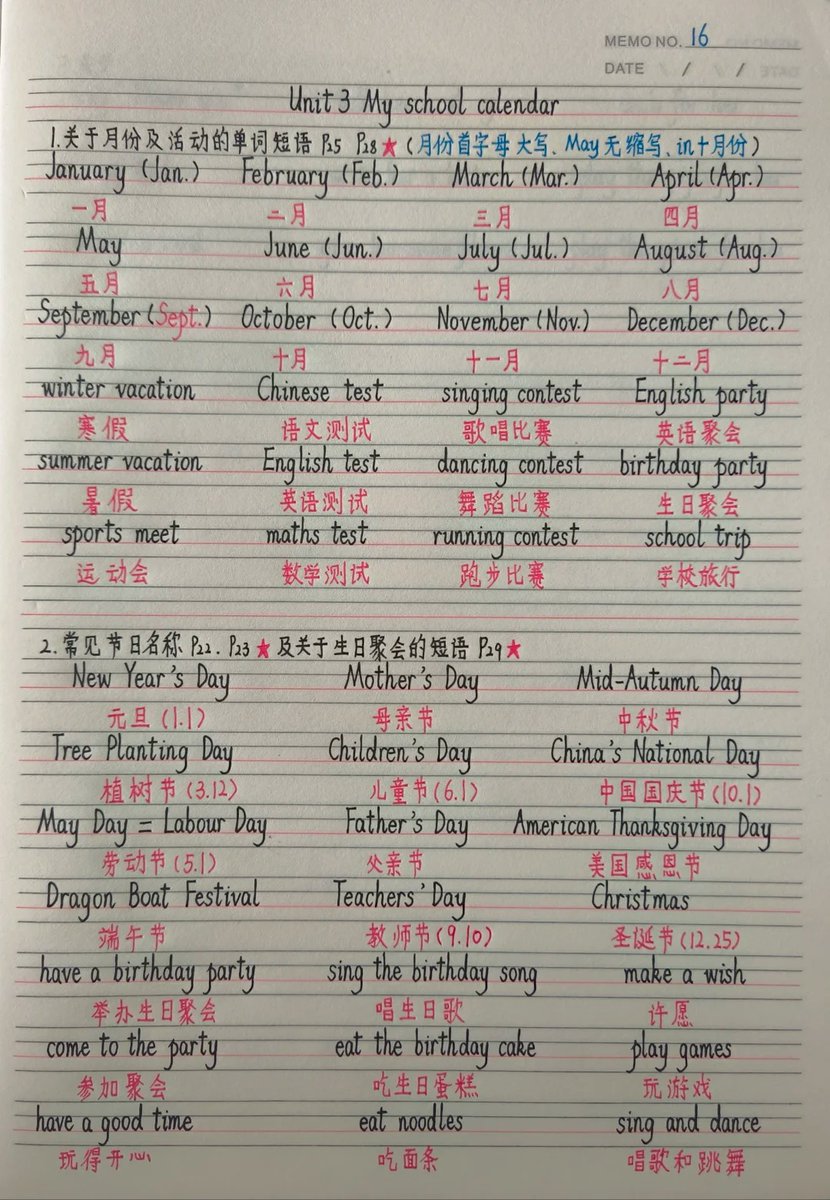 MEMO NO. 16
DATE / / /
Unit 3 My school calendar
1.关于月份及活动的单词短语 P25 P28★(月份首字母大写、May无缩写、in+月份)
January (Jan.) February (Feb.) March (Mar.) April (Apr.)
一月 二月 三月 四月
May June (Jun.) July (Jul.) August (Aug.)
五月 六月 七月 八月
September (Sept.) October (Oct.) November (Nov.) December (Dec.)
九月 十月 十一月 十二月
winter vacation Chinese test singing contest English party
寒假 语文测试 歌唱比赛 英语聚会
summer vacation English test dancing contest birthday party
暑假 英语测试 舞蹈比赛 生日聚会
sports meet maths test running contest school trip
运动会 数学测试 跑步比赛 学校旅行
2.常见节日名称 P22. P23★及关于生日聚会的短语 P29★
New Year's Day Mother's Day Mid-Autumn Day
元旦(1.1) 母亲节 中秋节
Tree Planting Day Children's Day China's National Day
植树节(3.12) 儿童节(6.1) 中国国庆节(10.1)
May Day = Labour Day Father's Day American Thanksgiving Day
劳动节(5.1) 父亲节 美国感恩节
Dragon Boat Festival Teachers' Day Christmas
端午节 教师节(9.10) 圣诞节(12.25)
have a birthday party sing the birthday song make a wish
举办生日聚会 唱生日歌 许愿
come to the party eat the birthday cake play games
参加聚会 吃生日蛋糕 玩游戏
have a good time eat noodles sing and dance
玩得开心 吃面条 唱歌和跳舞